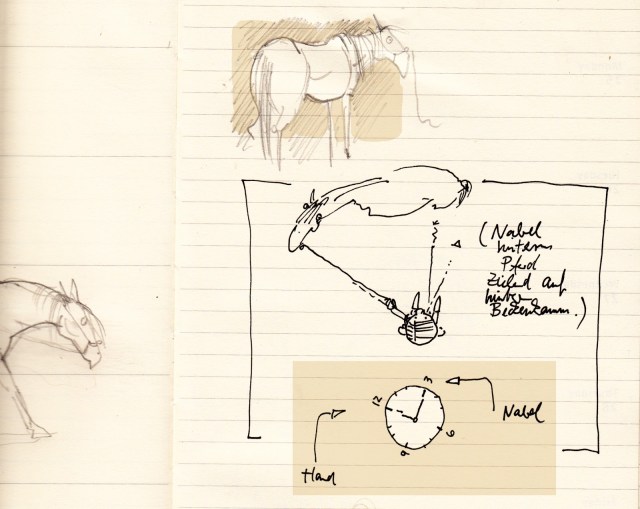 (Nabel
hinterm
Pferd
Zielend auf
hintern
Beckenkamm.)
12
3
6
9
Nabel
Hand